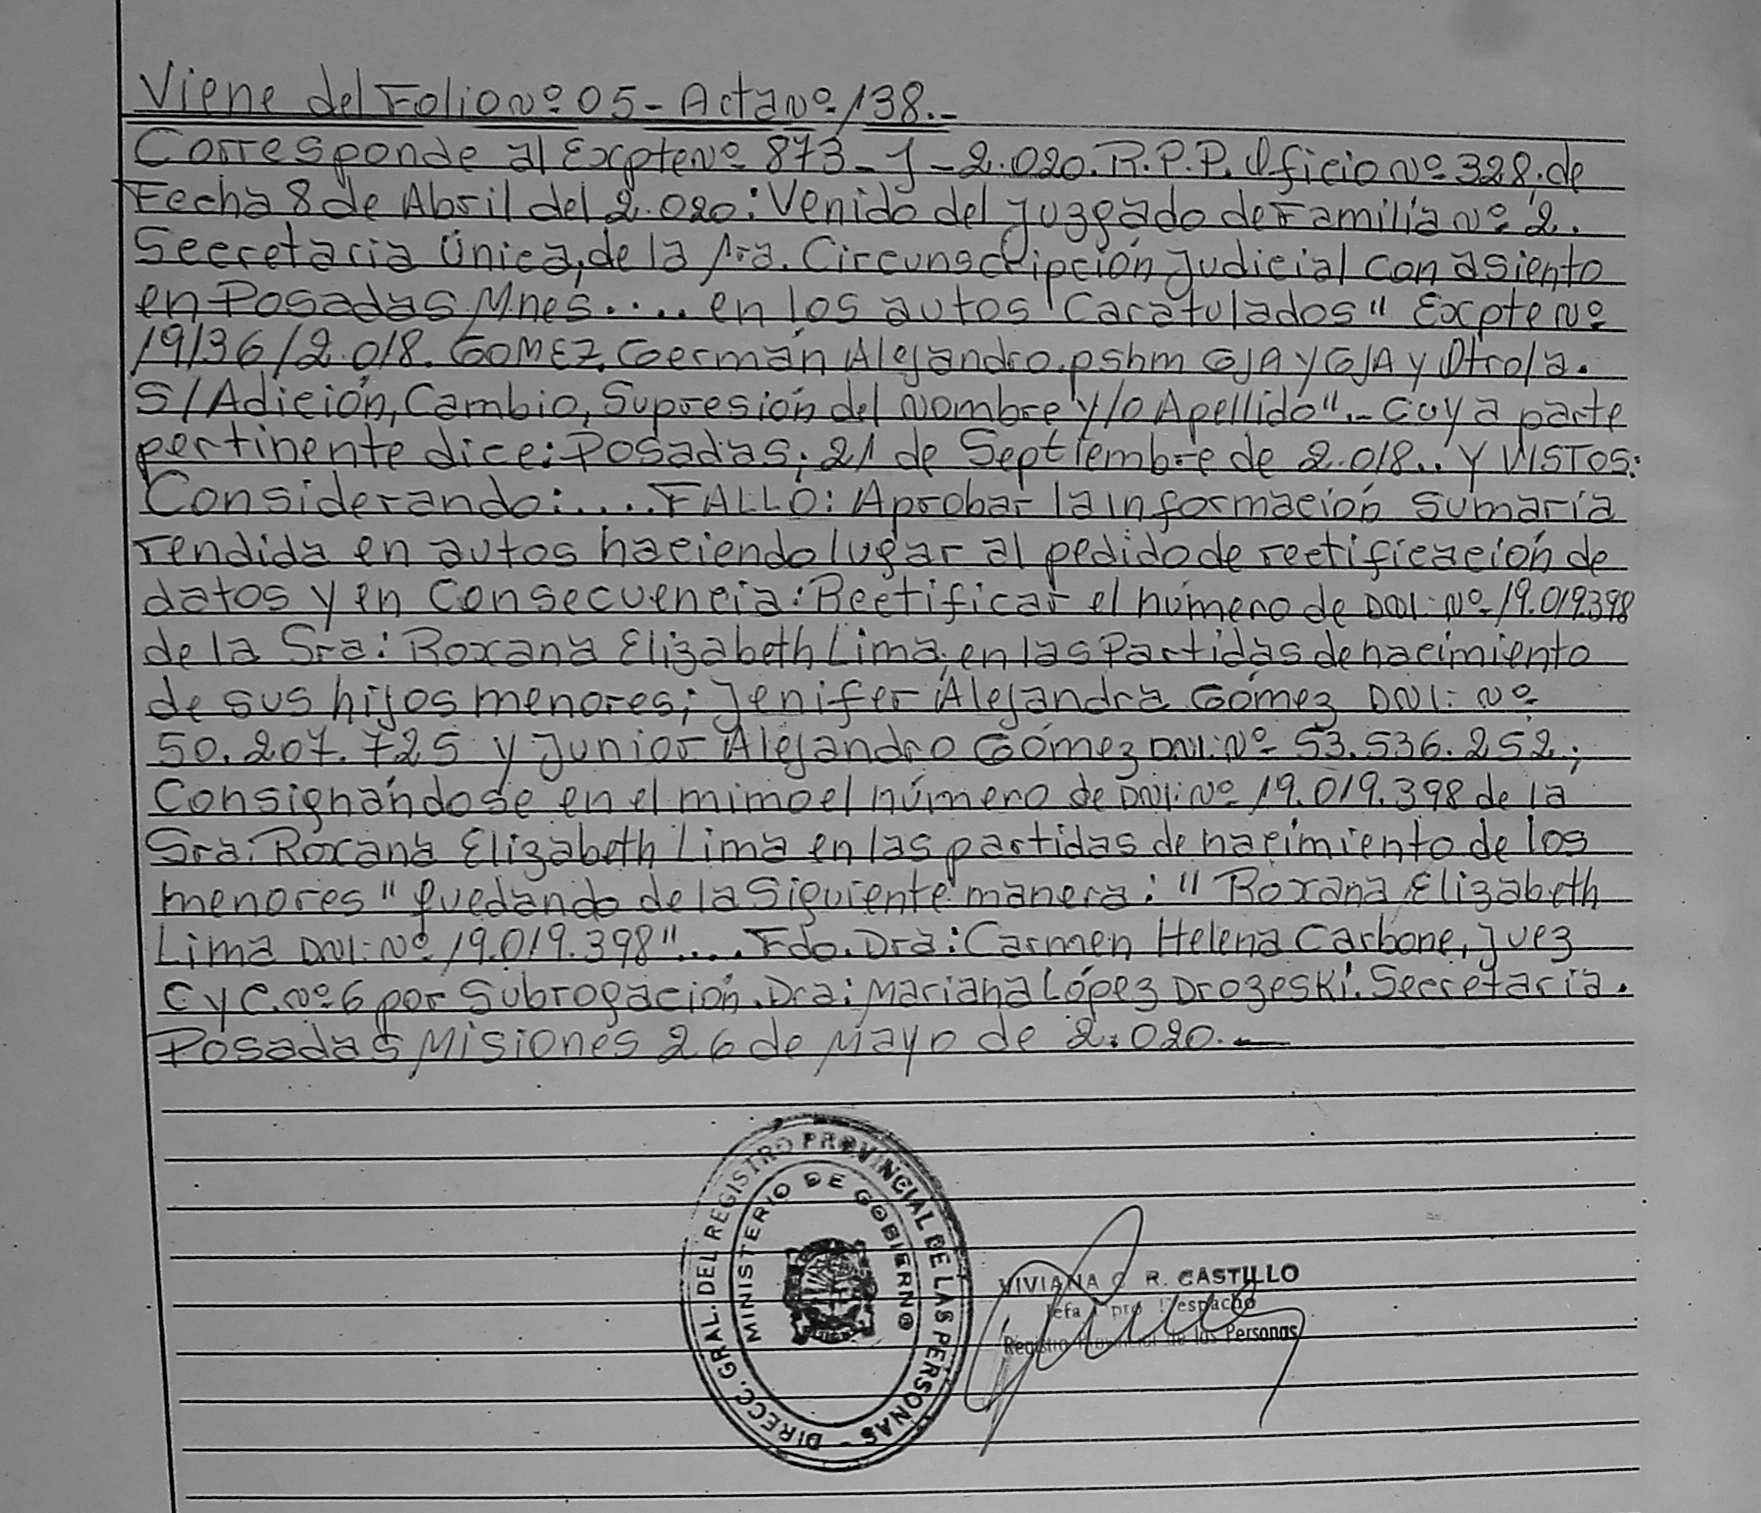 Viene del Folio nº 05 - Acta nº 138.-
Corresponde al Excpte nº 873-J-2.020. R.P.P. Oficio nº 328, de
Fecha 8 de Abril del 2.020: Venido del Juzgado de Familia nº 2.
Secretaria Única, de la 1ra. Circunscripción Judicial con asiento
en Posadas Mnes..... en los autos Caratulados " Excpte nº
19136/2.018. GOMEZ, Germán Alejandro.pshm GJA y GJA y Otro/a.
S/Adición, Cambio, Supresión del Nombre y/o Apellido".- Cuya parte
pertinente dice: Posadas, 21 de Septiembre de 2.018.. Y VISTOS:
Considerando:.... FALLO: Aprobar la información Sumaria
rendida en autos haciendo lugar al pedido de rectificación de
datos y en Consecuencia: Rectificar el número de DNI: Nº 19.019.398
de la Sra: Roxana Elizabeth Lima, en las Partidas de nacimiento
de sus hijos menores; Jenifer Alejandra Gómez DNI: Nº
50.207.725 y Junior Alejandro Gómez DNI: Nº 53.536.252;
Consignándose en el mimo el número de DNI: Nº 19.019.398 de la
Sra: Roxana Elizabeth Lima en las partidas de nacimiento de los
menores " quedando de la Siguiente manera: " Roxana Elizabeth
Lima DNI: Nº 19.019.398".... Fdo. Dra: Carmen Helena Carbone, Juez
C y C. nº 6 por Subrogación. Dra: Mariana López Drozeski. Secretaria.
Posadas Misiones 26 de Mayo de 2.020.-
DIRECC. GRAL. DEL REGISTRO PROVINCIAL DE LAS PERSONAS -
MINISTERIO DE GOBIERNO
VIVIANA C. R. CASTILLO
Jefa Dpto Despacho
Registro Provincial de las Personas